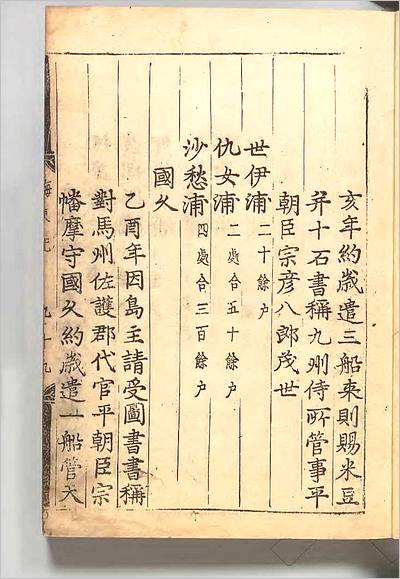 亥年約歲遣三船來則賜米豆
并十石書稱九州侍所管事平
朝臣宗彦八郎茂世
世伊浦 二十餘户
仇女浦 二處合五十餘户
沙愁浦 四處合三百餘户
國久
乙酉年因島主請受圖書書稱
對馬州佐護郡代官平朝臣宗
幡摩守國久約歲遣一船管天
海東 九十九